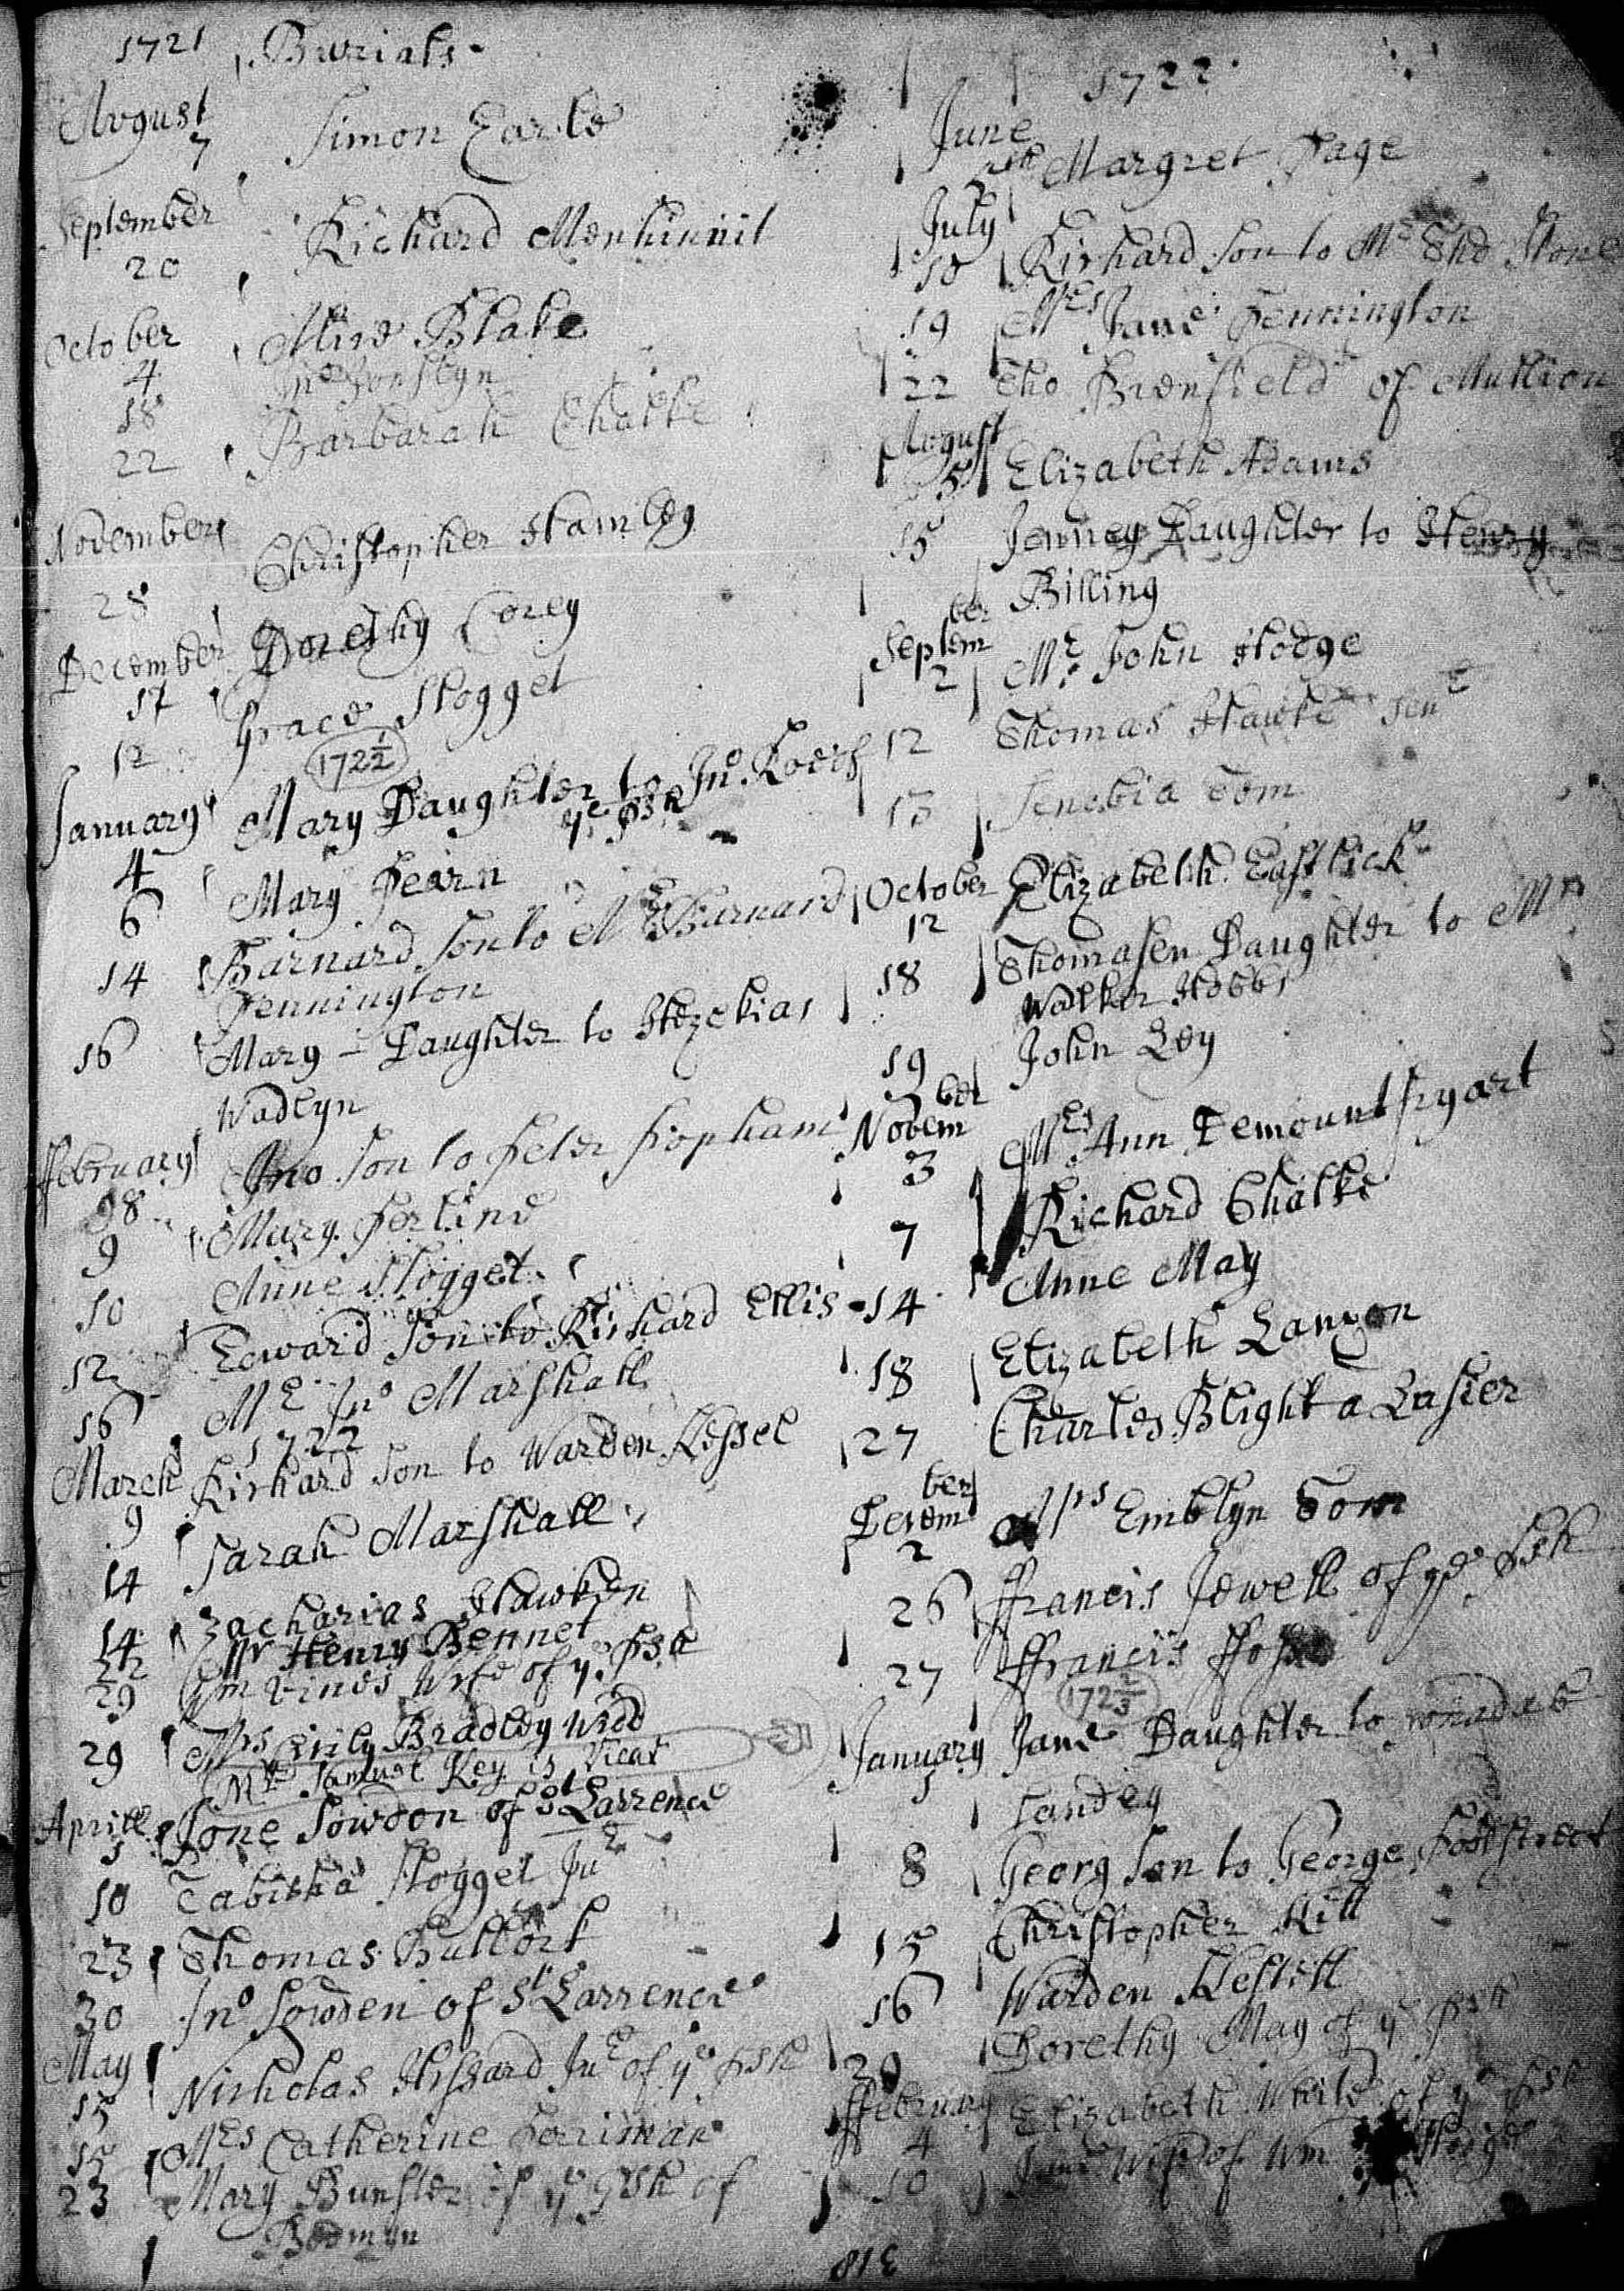 1721 Burials
August
7 Simon Earle
September
20 Richard Menhinnit
October
4 Blake
18 Jno Jonslyn
22 Barbarah Chalke
November
28 Christopher Hambly
December
17 Dorethy Corey
12 Grace Slogget
172½
January
4 Mary Daughter to Jno.
ye psh
6 Mary Pearn
14 Barnard Son to Mr Barnard
Pennington
16 Mary - Daughter to Hezekias
Wadlyn
ffebruary
8 Jno Son to Peter Popham
9 Mary
10 Anne Slogget
12 Edward Son to Richard Ellis
16 Mr Jno Marshall
1722
March
9 Richard Son to Warden Kessel
14 Sarah Marshall
14 Zacharias Hawken
22 Mr Henry Bennet
29 Wm Vines Wife of ye psh
29 Mrs Bradley Widd
Mr Samuel Key is Vicar
Aprill
Jone Sowdon of St Larrence
10 Tabitha Slogget Jur
23 Thomas Bullock
30 Jno Sowden of St Larrence
May
15 Nicholas Jur of ye psh
15 Mrs Catherine
23 Mary Bunster of ye psh of
Bodmyn
1722
June
Margret Page
July
10 Richard Son to Mr Tho Stone
19 Mrs Jane Pennington
22 Tho of Mullion
August
5 Elizabeth Adams
15 Jenney Daughter to Henry
Billing
September
2 Mr John Hodge
12 Thomas Hawke Senr
13 Senebia Tom
October
12 Elizabeth Eastlick
18 Thomasen Daughter to Mr
Walker Hobbs
19 John Ley
November
3 Mrs Ann
7 Richard Chalke
14 Anne May
18 Elizabeth Lanyon
27 Charles Blight a Lasier
December
2 Mrs Emblyn Tom
26 ffrancis Jewell of ye psh
27 ffrancis
172⅔
January
Jane Daughter to
Landey
8 Georg Son to George
15 Christopher Hill
16 Warden Kestell
Dorethy May of ye psh
ffebruary
4 Elizabeth White of ye psh
10 Jane Wife of Wm